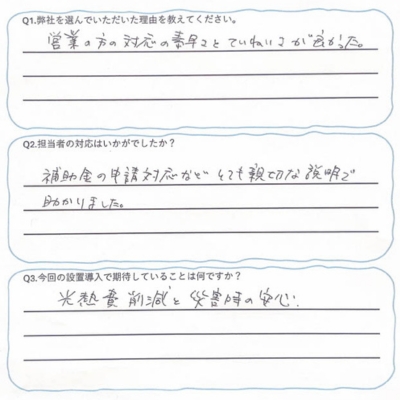 Q1.弊社を選んでいただいた理由を教えてください。
営業の方の対応の素早さとていねいさが良かった。
Q2.担当者の対応はいかがでしたか？
補助金の申請対応などとても親切な説明で
助かりました。
Q3.今回の設置導入で期待していることは何ですか？
光熱費削減と災害時の安心.